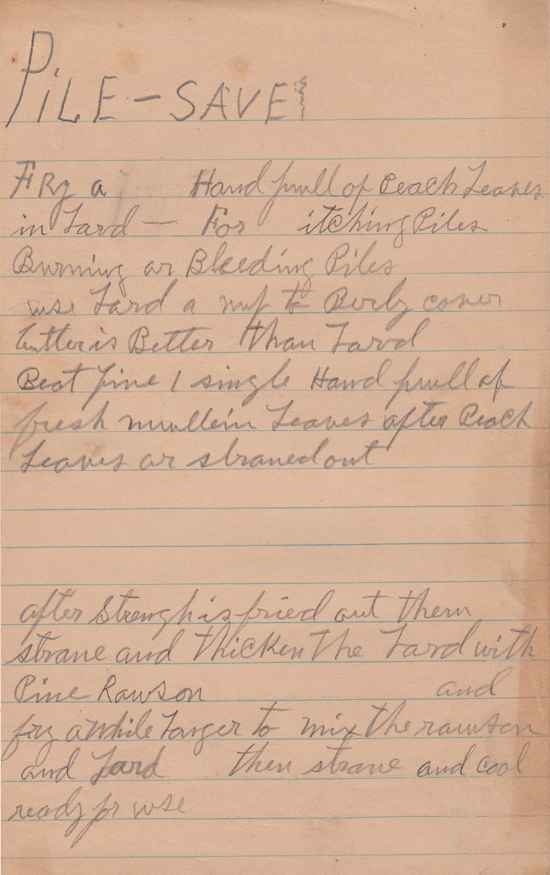 PiLE - SAVE
FRy a Hand full of Peach Leaves
in Lard — For itching Piles
Burning or Bleeding Piles
use Lard a nuf to Berly cover
butter is Better than Lard
Beat fine 1 single Hand full of
fresh mullein Leaves after Peach
Leaves ar straned out
after Strength is fried out them
strane and thicken the Lard with
Pine Rawson and
fry a while Longer to mix the rawson
and Lard then strane and cool
ready for use